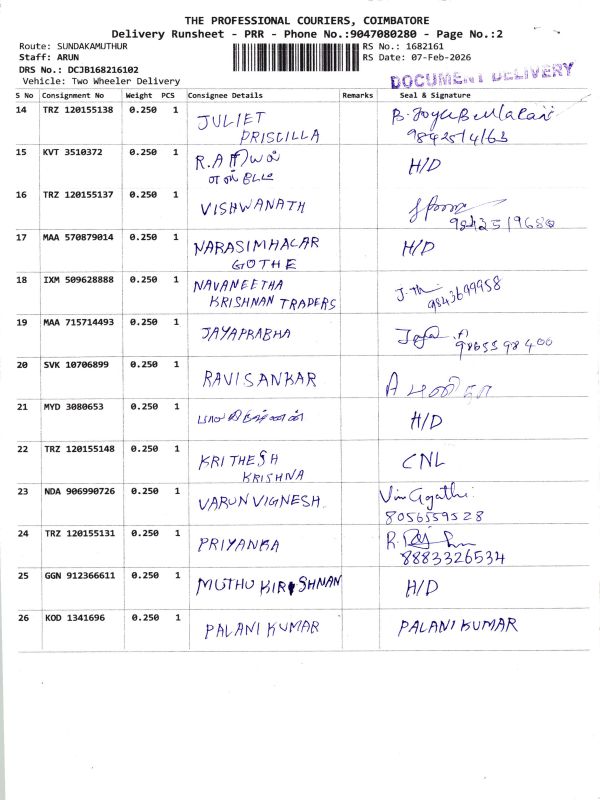 THE PROFESSIONAL COURIERS, COIMBATORE
Delivery Runsheet - PRR - Phone No.:9047080280 - Page No.:2
Route: SUNDAKAMUTHUR RS No.: 1682161
Staff: ARUN RS Date: 07-Feb-2026
DRS No.: DCJB168216102
Vehicle: Two Wheeler Delivery
DOCUMENT DELIVERY
S No Consignment No Weight PCS Consignee Details Remarks Seal & Signature
14 TRZ 120155138 0.250 1 JULIET PRISCILLA
9842514163
15 KVT 3510372 0.250 1 H/D
16 TRZ 120155137 0.250 1 VISHWANATH
17 MAA 570879014 0.250 1 NARASIMHALAR GOTHE H/D
18 IXM 509628888 0.250 1 NAVANEETHA KRISHNAN TRADERS
9843699958
19 MAA 715714493 0.250 1 JAYAPRABHA
9865598400
20 SVK 10706899 0.250 1 RAVISANKAR
21 MYD 3080653 0.250 1 H/D
22 TRZ 120155148 0.250 1 KRITHESH KRISHNA CNL
23 NDA 906990726 0.250 1 VARUN VIGNESH
8056559528
24 TRZ 120155131 0.250 1 PRIYANKA
8883326534
25 GGN 912366611 0.250 1 MUTHU KIRSHNAN H/D
26 KOD 1341696 0.250 1 PALANI KUMAR PALANI KUMAR